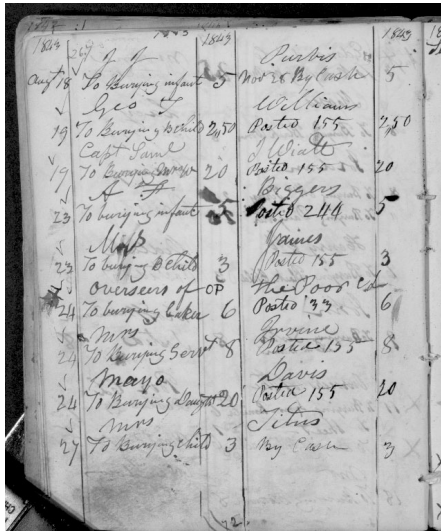 1843 1843 1843
267 J J Purvis
Aug 18 To Burying infant 5 Nov 28 By Cash 5
Geo Williams
19 To Burying child 2,50 Posted 155 2,50
Capt Saml J Wiatt
19 To Burying 20 Posted 155 20
A Biggers
23 To burying infant 5 Posted 244 5
Mrs Jaines
23 To burying child 3 Posted 155 3
overseers of OP the Poor
24 To burying 6 Posted 133 6
Mrs Irvine
24 To Burying Servt 8 Posted 155 8
Mayo Davis
24 To Burying Daught 20 Posted 155 20
Mrs Titus
27 To Burying child 3 By Cash 3